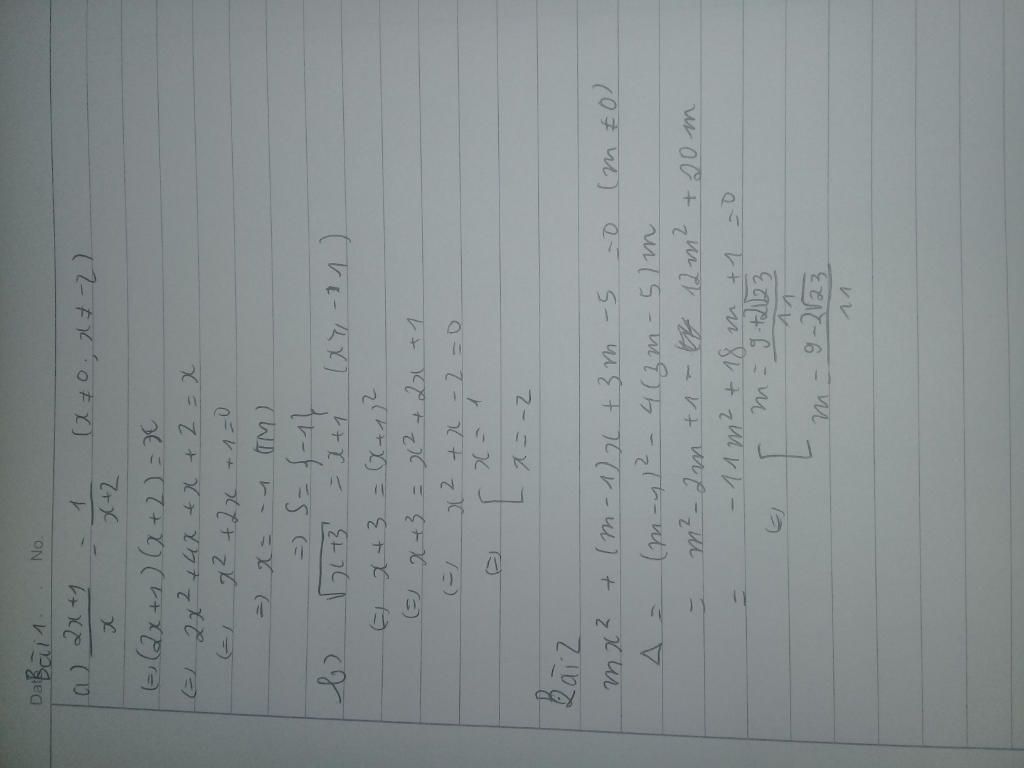 Date. No.
Bài 1.
a) \frac{2x+1}{x} - \frac{1}{x+2} (x ≠ 0; x ≠ -2)
(=) (2x+1)(x+2) = x
(=) 2x² + 4x + x + 2 = x
(=) x² + 2x + 1 = 0
=) x = -1 (TM)
=) S = {-1}
b) √(x+3) = x+1 (x ≥ -1)
(=) x+3 = (x+1)²
(=) x+3 = x² + 2x + 1
(=) x² + x - 2 = 0
(=) [ x = 1
x = -2
Bài 2
mx² + (m-1)x + 3m - 5 = 0 (m ≠ 0)
Δ = (m-1)² - 4(3m-5)m
= m² - 2m + 1 - 12m² + 20m
= -11m² + 18m + 1 = 0
(=) [ m = \frac{9+2√23}{11}
m = \frac{9-2√23}{11}